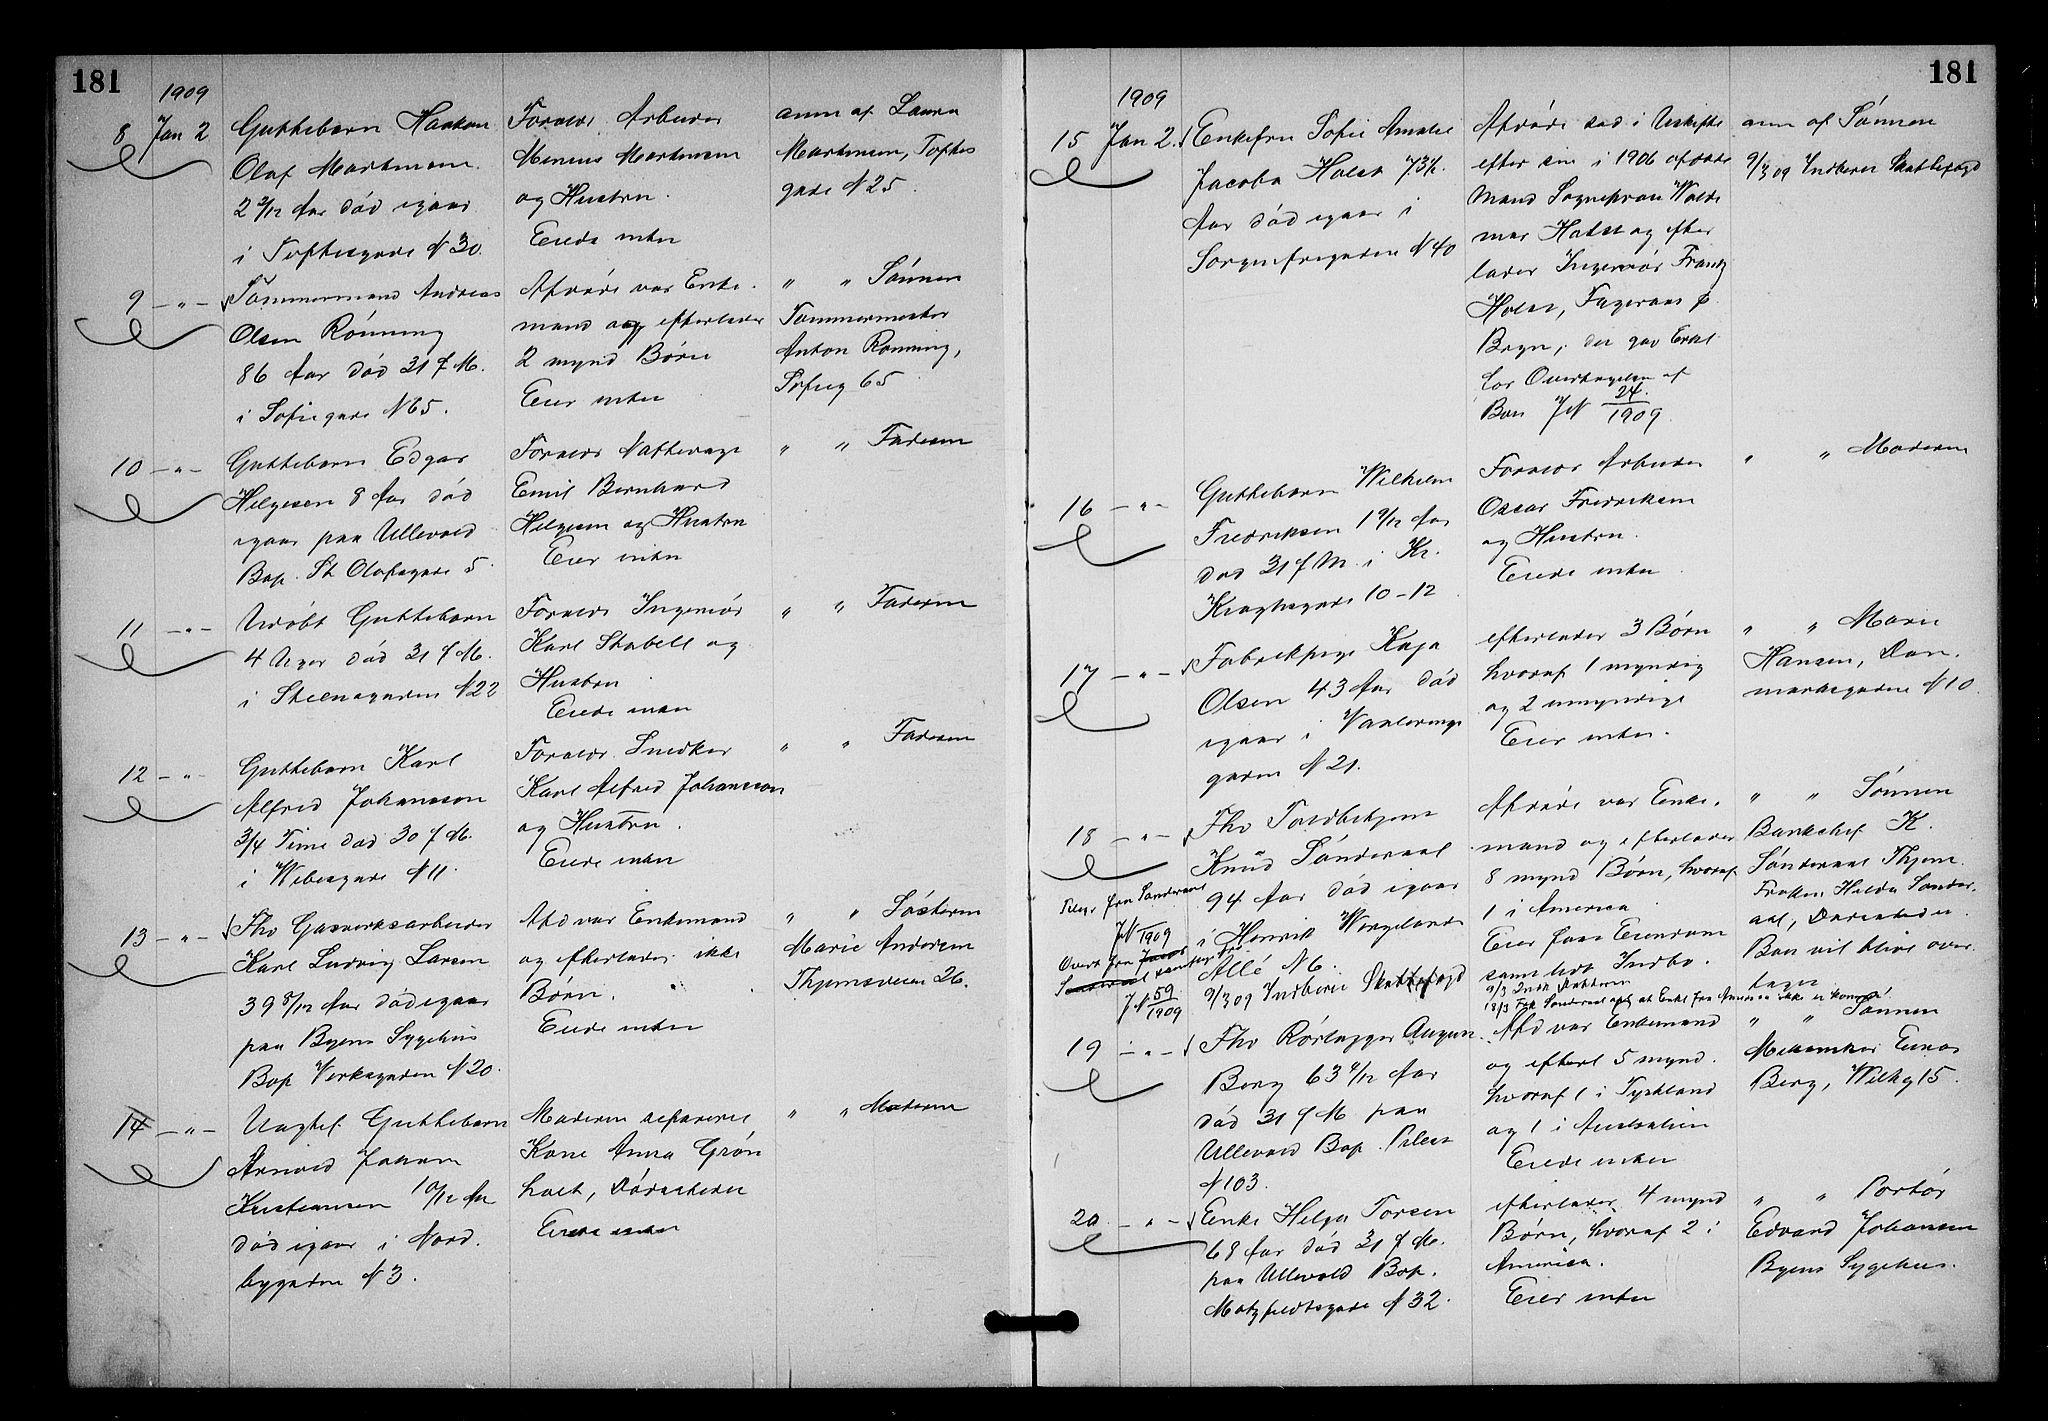 181
1909
8 Jan 2 Guttebarn Haakon
Olaf Martinsen
2 2/12 Aar død igaar
i Toftesgade N 30.
Forældr. Arbeider
Menius Martinsen
og Hustru.
Eiede intet
anm af Laura
Martinsen, Toftes
gade N 25.
9 - " - Tømmermand Andreas
Olsen Rönning
86 Aar död 31 f M.
i Sofiegade N 65.
Afdøde var Enke
mand og efterlader
2 mynd Børn
Eier intet
" " Sønnen
Tømmermester
Anton Rønning,
Sofieg 65
10 - " - Guttebarn Edgar
Helgesen 8 Aar død
igaar paa Ullevold
Bop. St Olafsgade 5.
Forældr Nattevagt
Emil Bernhard
Helgesen og Hustru
Eier intet
" " Faderen
11 - " - Udøbt Guttebarn
4 Uger død 31 f M.
i Steensgaden N 22
Forældr Ingeniør
Karl Stabell og
Hustru.
Eiede intet
" " Faderen
12 - " - Guttebarn Karl
Alfred Johansson
3/4 Time død 30 f M.
i Wibesgade N 11.
Forældr Snedker
Karl Alfred Johansson
og Hustru.
Eiede intet
" " Faderen
13 - " - Fhv Gasverksarbeider
Karl Ludvig Larsen
39 8/12 Aar død igaar
paa Byens Sygehus
Bop Verksgaden N 20.
Afd var Enkemand
og efterlader ikke
Børn.
Eiede intet
" " Søsteren
Marie Andersen
Thjemsveien 26.
14 - " - Uægtef Guttebarn
Arnold Johan
Kristiansen 10/12 Aar
død igaar i Nord.
bygaden N 3.
Moderen separeret
Kone Anna Grøn
holt, Dødsstedet
Eiede intet
" " Moderen
181
1909
15 Jan 2. Enkefru Sofie Amalie
Jacoba Holst 73 1/2
Aar død igaar i
Sorgenfrigaden N 40
Afdøde sad i Uskifte
efter sin i 1906 afdøde
Mand Sogneprest Walde
mar Holst og efter
lader Ingeniør Frantz
Holst, Fagernes p.
Bryn, der gav Erkl.
for Overtagelse af
Boet JN 24/1909.
anm af Sønnen
9/3 09 Indberet Skattefogd
16 - " - Guttebarn Wilhelm
Fredriksen 1 9/12 Aar
død 31 f M. i Kr.
Kroghsgade 10-12
Forældr Arbeider
Oscar Fredriksen
og Hustru.
Eiede intet
" " Moderen
17 - " - Fabrikpige Kaja
Olsen 43 Aar død
igaar i Vaalerengs
gaden N 21.
efterlader 3 Børn
hvoraf 1 myndig
og 2 umyndige
Eier intet.
" " Marie
Hansen, Dan.
marksgaden N 10.
18 - " - Fhv
Knud Sønderaal
94 Aar død igaar
i Henrik Wergelands
Allé N 6.
9/3 09 Indberet Skattefogd
fra Sønderaal
JN /1909
fra
JN 59/1909
Afdøde var Enke.
mand og efterlader
8 mynd Børn, hvoraf
1 i America
Eier fast Eiendom
samt lidt Indbo.
" " Sønnen
Bankchef K.
Sønderaal Thjem.
Frøken Helda Sønder.
aal, Dødsstedet.
Boet vil blive over
taget
19 - " - Fhv Rørlægger August
Berg 63 4/12 Aar
død 31 f M paa
Ullevold Bop. Pilest
N 103.
Afd var Enkemand
og efterl 5 mynd.
hvoraf 1 i Tyskland
og 1 i Australien
Eiede intet
" " Sønnen
Mekaniker Einar
Berg, Wilhg 15.
20 - " - Enke Helga Torsen
68 Aar død 31 f M.
paa Ullevold Bop.
Motzfeldtsgade N 32.
efterlader 4 mynd
Børn, hvoraf 2 i
America.
Eier intet
" " Portør
Edvard Johansen
Byens Sygehus.